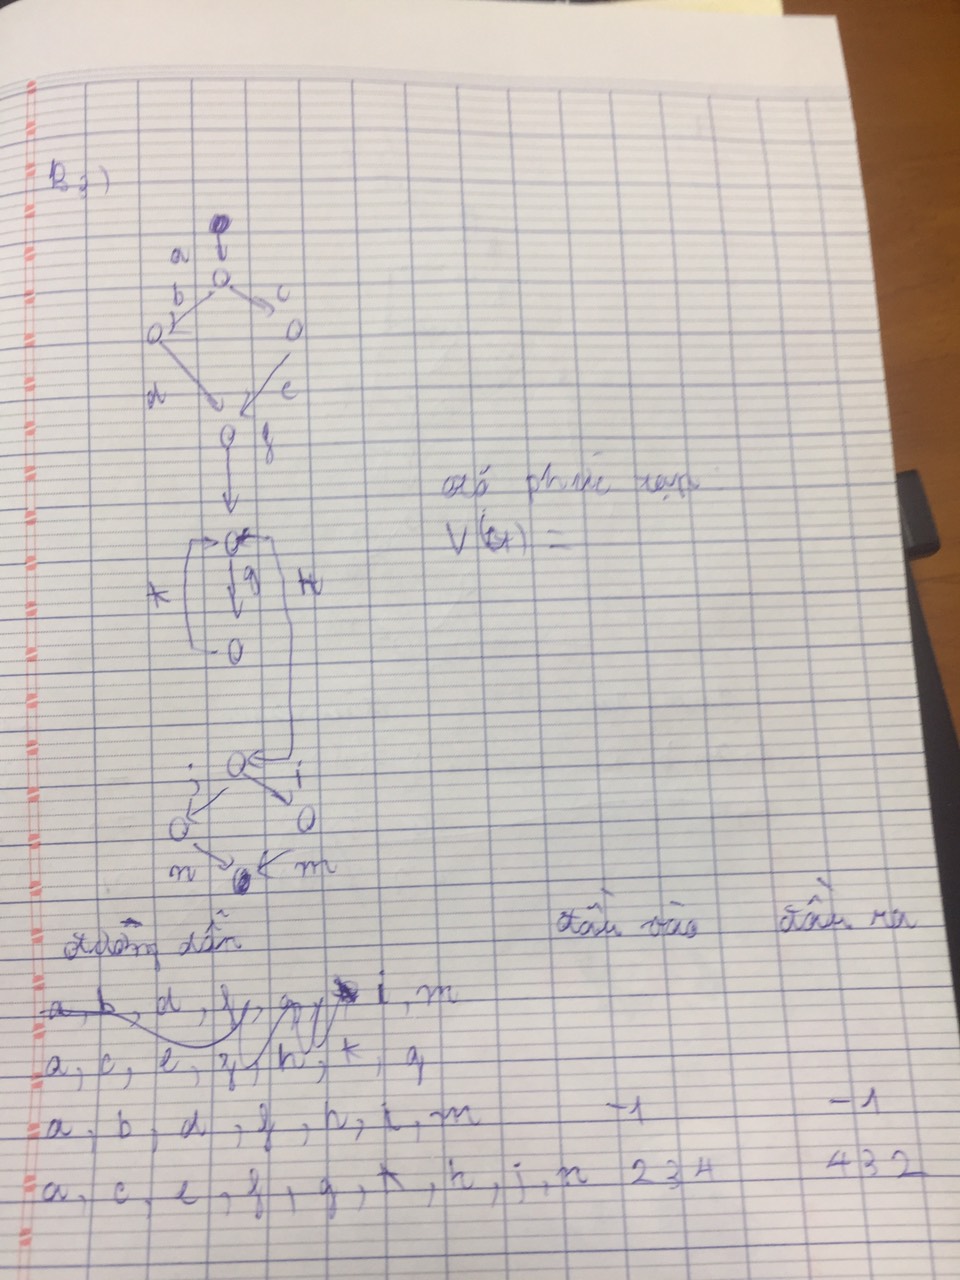 B3)
a
b c
d e
f
k g h
j i
n m
độ phức tạp
V(G) =
đường dẫn đầu vào đầu ra
a, b, d, f, g, i, m
a, c, e, f, h, k, g
a, b, d, f, h, i, m -1 -1
a, c, e, f, g, k, h, j, n 234 432